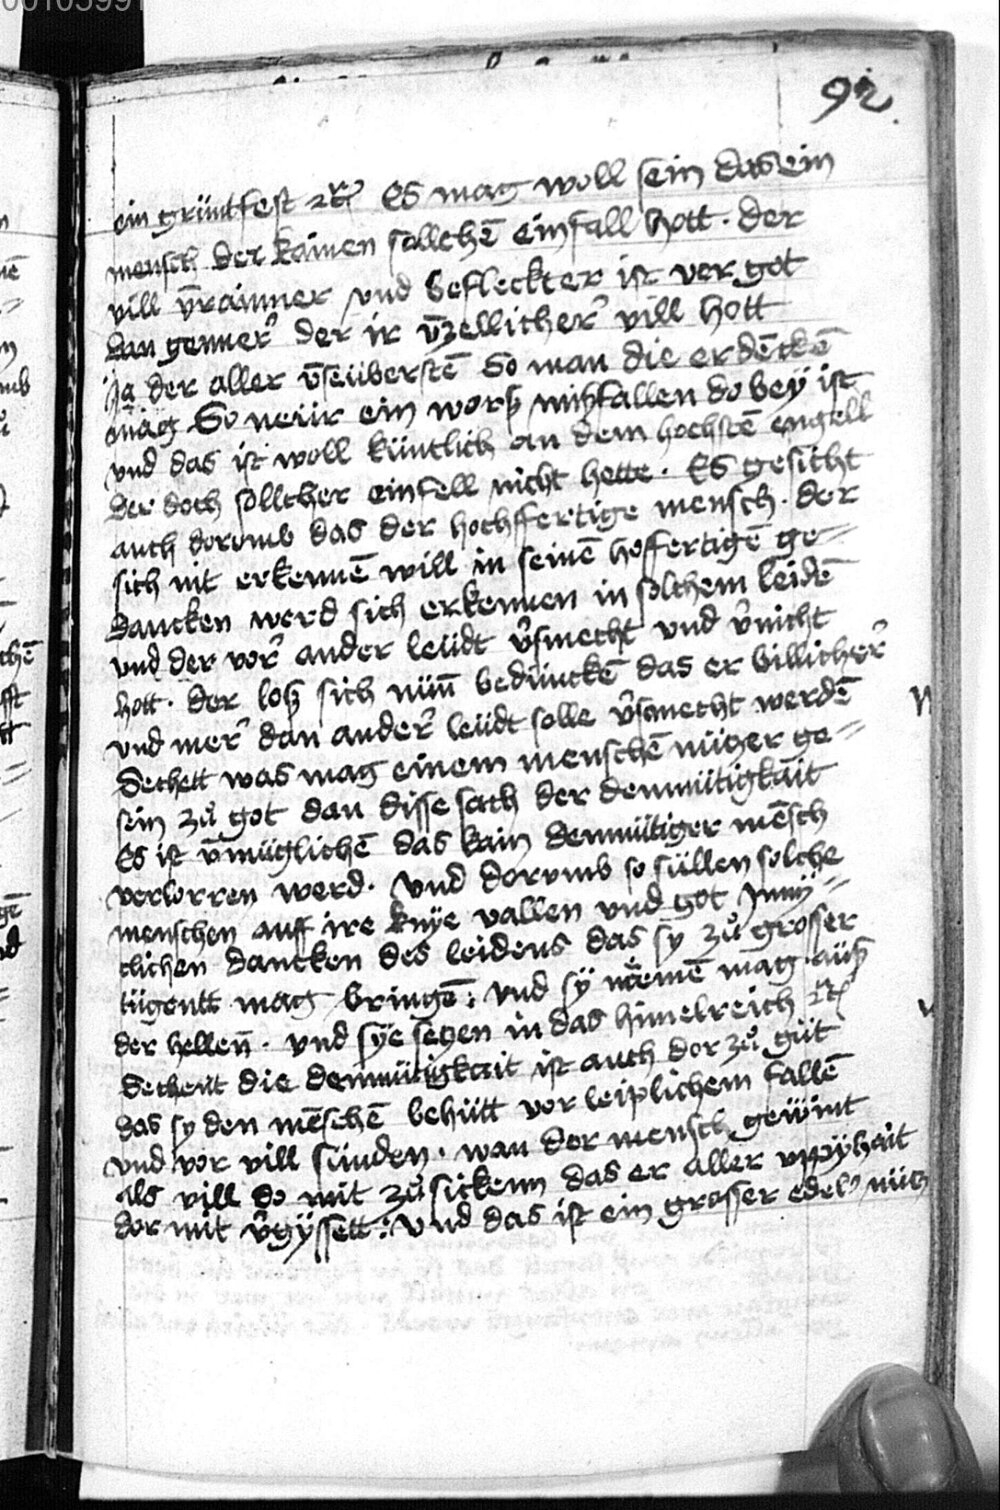 92.
ein grüntfest ꝛc Es mag woll sein das ein
mensch der kainen sollchē einfall hott · der
vill v̄rainner vnd befleckter ist vor got
dan genner der ir v̄zellicher vill hott
Ja der aller v̄seüberstē So man die erdēckē
mag So neür ein worß mißfallen do bey ist
vnd das ist woll küntlich an dem hochstē engell
der doch sollcher einfell nicht hette · Es gesicht
auch dorvmb das der hochffertige mensch · der
sich nit erkennē will in seinē hoffertigē ge-
dancken werd sich erkennen in solchem leidē
vnd der vor ander leüdt v̄smecht vnd v̄nicht
hott · der loß sich nün̄ bedünckē das er billicher
vnd mer dan ander leüdt solle v̄smecht werdē
Sechett was mag einem menschē nüczer ge-
sein zů got dan disse sach der demmütigkait
Es ist v̄müglichē das kain demmütiger mēsch
verlorren werd · Vnd dorvmb so süllen solche
menschen auff ire knÿe vallen vnd got Jnnÿ-
clichen dancken des leidens das sy zů grosser
tügentt mag bringē : vnd sÿ nēmē mag auß
der hellen̄ · vnd sÿe seczen in das himelreich ꝛc
Sechent die demmütigkait ist auch dor zů güt
das sy den mēschē behütt vor leiplichem fallē
vnd vor vill sünden · wan der mensch gewint
als vill do mit zů sickenn das er aller vppÿhait
dor mit v̄gÿssett : vnd das ist ein grosser edelr nücz